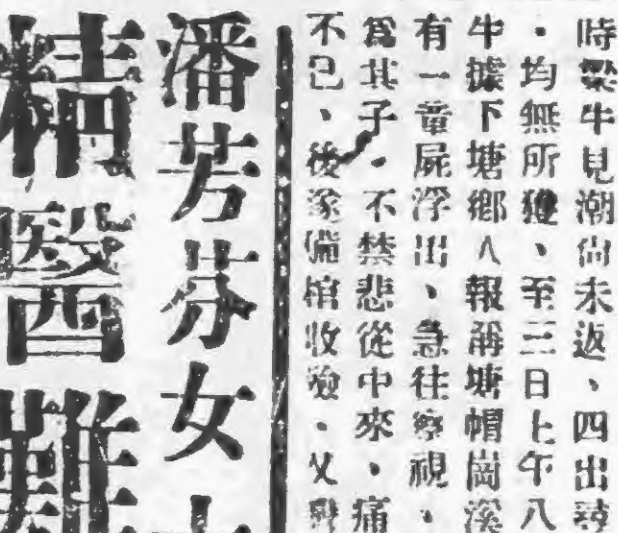 時梁牛見潮尙未返、四出尋
・均無所獲、至三日上午八
牛據下塘鄉人報稱塘帽崗溪
有一童屍浮出、急往察視、
爲其子・不禁悲從中來・痛
不已、後遂備棺收殮・又
潘芳芬女士
精醫難